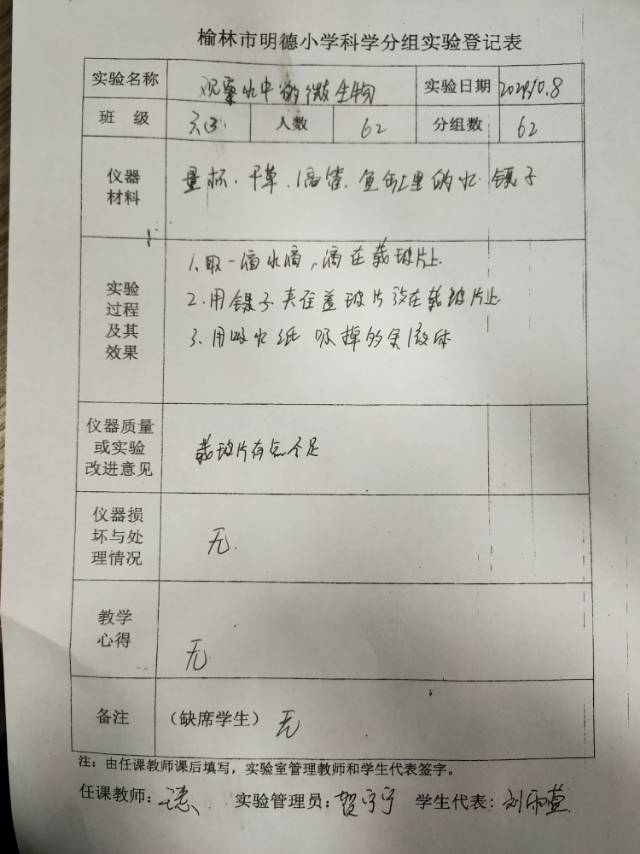 榆林市明德小学科学分组实验登记表
实验名称 观察水中的微生物 实验日期 10.8
班 级 六(3) 人数 62 分组数 62
仪器
材料
量杯、干草、滴管、鱼缸里的水 镊子
实验
过程
及其
效果
1.取一滴水滴,滴在载玻片上
2.用镊子夹住盖玻片放在载玻片上
3.用吸水纸吸掉的余液体
仪器质量
或实验
改进意见
载玻片有点不足
仪器损
坏与处
理情况
无.
教学
心得
无
备注 (缺席学生) 无
注:由任课教师课后填写,实验室管理教师和学生代表签字。
任课教师: 实验管理员:贺宁宁 学生代表:刘雨萱